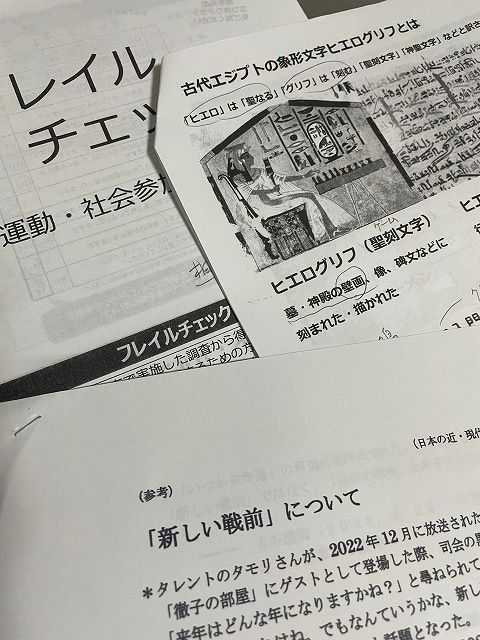 レイル
チェッ
運動・社会参
フレイルチェック
で実施した調査から得
るための方
古代エジプトの象形文字ヒエログリフとは
「ヒエロ」は「聖なる」「グリフ」は「刻む」「聖刻文字」「神聖文字」などと訳さ
ゲーム
ヒエログリフ（聖刻文字）
墓・神殿の壁画、像、碑文などに
刻まれた・描かれた
ヒエ
（日本の近・現代
（参考）
「新しい戦前」について
＊タレントのタモリさんが、2022年12月に放送された
「徹子の部屋」にゲストとして登場した際、司会の黒
「来年はどんな年になりますかね？」と尋ねられて
はね、でもなんていうかな、新し
話題となった。